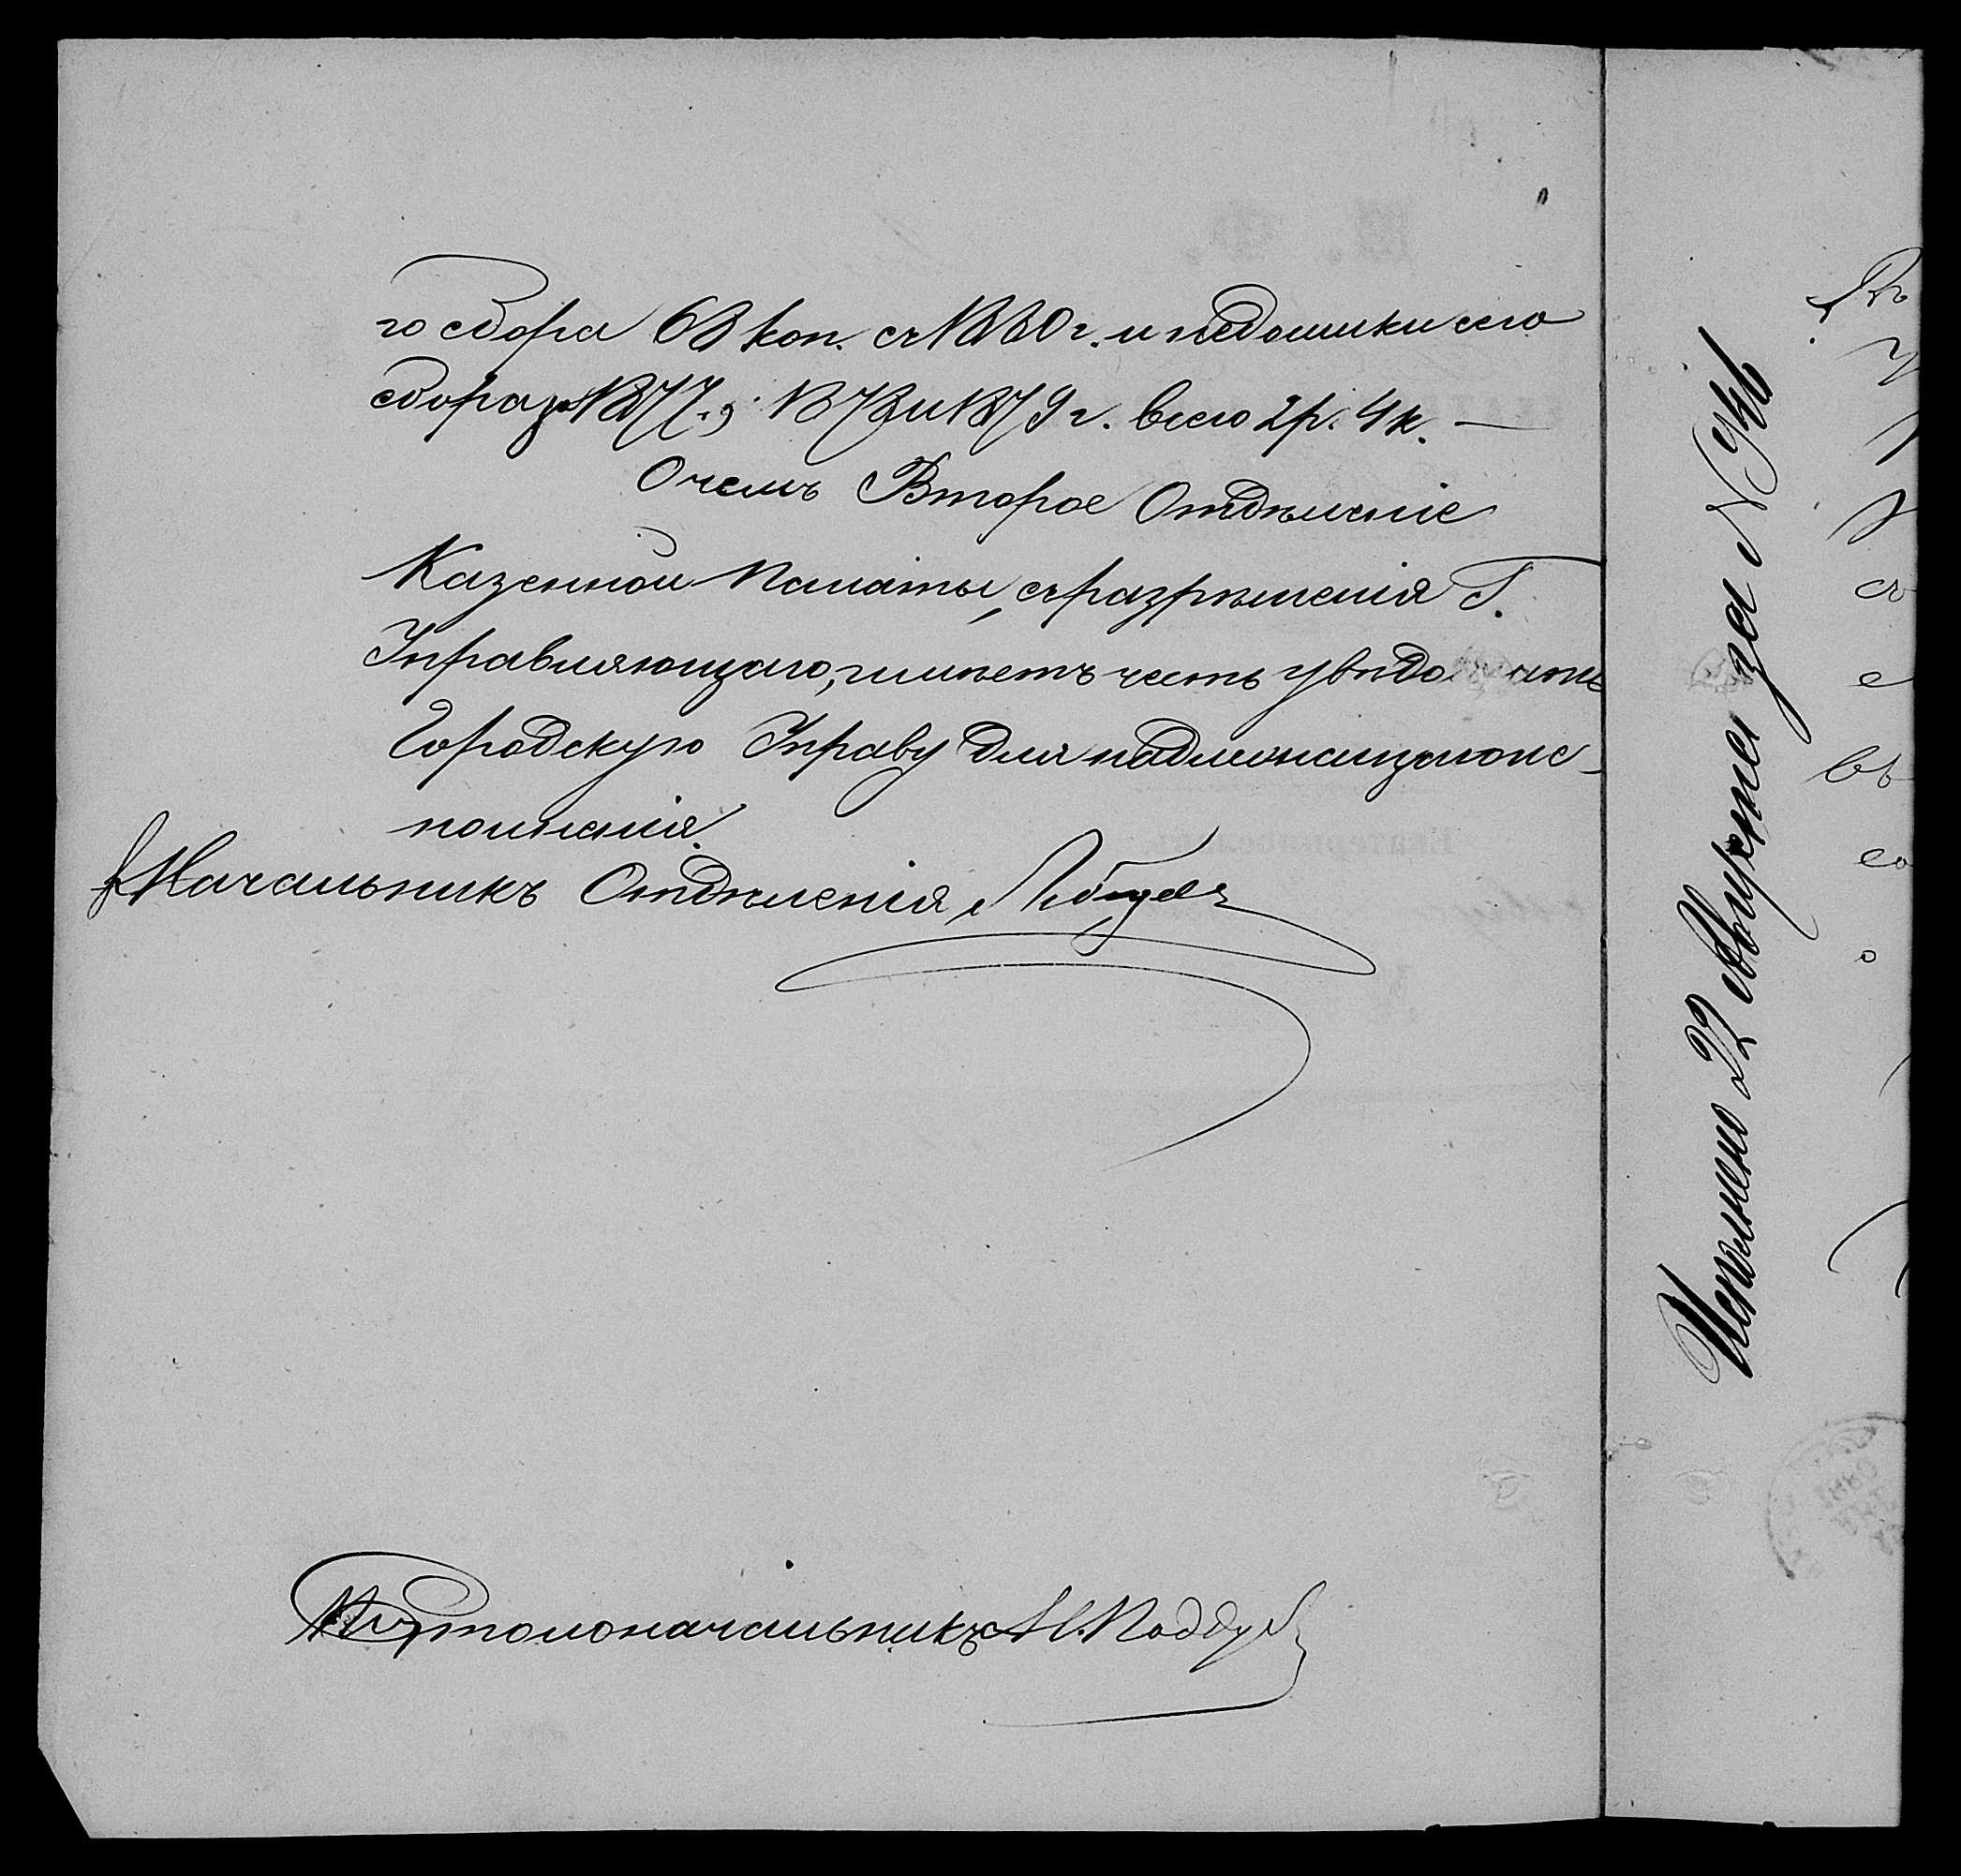 го сбора 68 коп. съ 1880 г. и недоимки сего
сбора за 1877, 1878 и 1879 г. всего 2 р. 4 к. —
О чемъ Второе Отдѣленіе
Казенной Палаты, съ разрѣшенія Г.
Управляющаго, имѣетъ честь увѣдомить
Городскую Управу для надлежащаго ис-
полненія.
Начальникъ Отдѣленія
Столоначальникъ
Исполнено 22 Августа за №